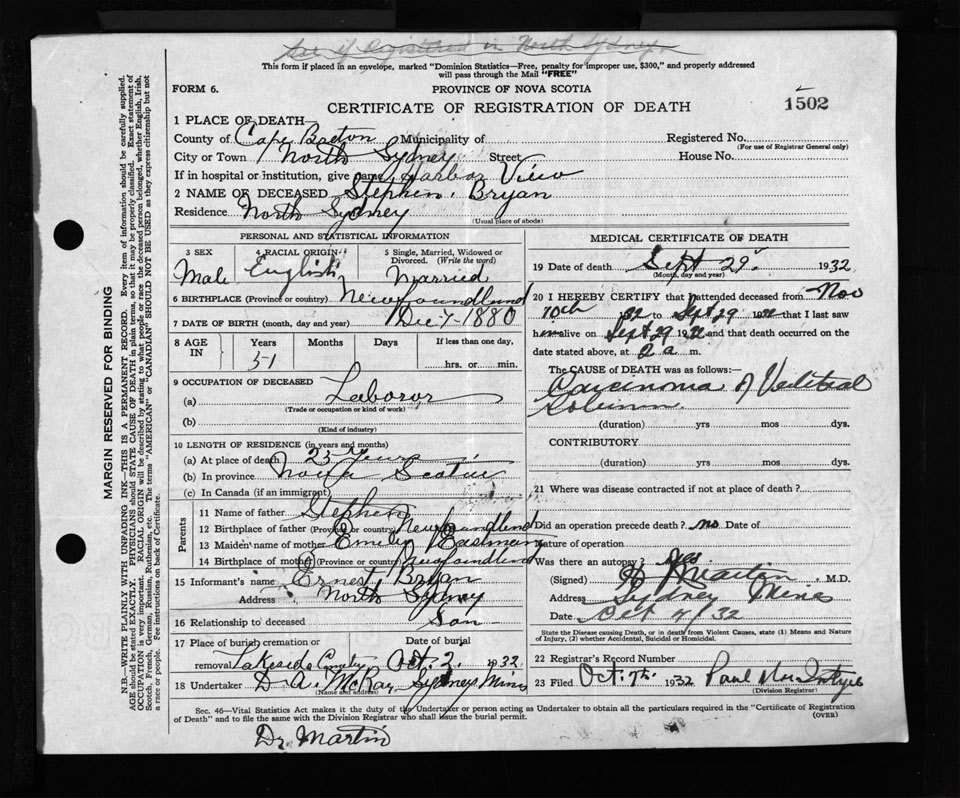 See if Registered in North Sydney
This form if placed in an envelope, marked "Dominion Statistics—Free, penalty for improper use, $300," and properly addressed
will pass through the Mail "FREE"
FORM 6. PROVINCE OF NOVA SCOTIA
CERTIFICATE OF REGISTRATION OF DEATH 1502
1 PLACE OF DEATH
County of Cape Breton Municipality of Registered No.
(For use of Registrar General only)
City or Town North Sydney Street House No.
If in hospital or institution, give name Harbor View
2 NAME OF DECEASED Stephen Bryan
Residence North Sydney
(Usual place of abode)
PERSONAL AND STATISTICAL INFORMATION
3 SEX 4 RACIAL ORIGIN 5 Single, Married, Widowed or
Divorced. (Write the word)
Male English Married
6 BIRTHPLACE (Province or country) Newfoundland
7 DATE OF BIRTH (month, day and year) Dec 7 - 1880
8 AGE IN Years Months Days If less than one day,
51 hrs. or min.
9 OCCUPATION OF DECEASED
(a) Laborer
(Trade or occupation or kind of work)
(b)
(Kind of industry)
10 LENGTH OF RESIDENCE (in years and months)
(a) At place of death 23 years
(b) In province Nova Scotia
(c) In Canada (if an immigrant)
Parents
11 Name of father Stephen
12 Birthplace of father (Province or country) Newfoundland
13 Maiden name of mother Emily Eastman
14 Birthplace of mother (Province or country) Newfoundland
15 Informant's name Ernest Bryan
Address North Sydney
16 Relationship to deceased Son
17 Place of burial, cremation or Date of burial
removal Lakeside Cemetery Oct. 2 1932
18 Undertaker D. A. McRay Sydney Mines
(Name and address)
MEDICAL CERTIFICATE OF DEATH
19 Date of death Sept 29 1932
(Month, day and year)
20 I HEREBY CERTIFY that I attended deceased from Nov
10th 32 to Sept 29 19 that I last saw
him alive on Sept 29 19 and that death occurred on
date stated above, at 2 a m.
The CAUSE of DEATH was as follows:
Carcinoma of Vertebral
Column
(duration) yrs mos dys.
CONTRIBUTORY
(duration) yrs. mos dys.
21 Where was disease contracted if not at place of death?
Did an operation precede death? no Date of
Nature of operation
Was there an autopsy? yes
(Signed) Martin, M.D.
Address Sydney Mines
Date Oct 4/32
State the Disease causing Death, or in death from Violent Causes, state (1) Means and Nature
of Injury, (2) whether Accidental, Suicidal or Homicidal.
22 Registrar's Record Number
23 Filed Oct. 7th. 1932 Paul
(Division Registrar)
Sec. 46—Vital Statistics Act makes it the duty of the Undertaker or person acting as Undertaker to obtain all the particulars required in the "Certificate of Registration
of Death" and to file the same with the Division Registrar who shall issue the burial permit. (OVER)
Dr Martin
MARGIN RESERVED FOR BINDING
N.B.—WRITE PLAINLY WITH UNFADING INK—THIS IS A PERMANENT RECORD. Every item of information should be carefully supplied.
AGE should be stated EXACTLY. PHYSICIANS should STATE CAUSE OF DEATH in plain terms, so that it may be properly classified. Exact statement of
OCCUPATION is very important. RACIAL ORIGIN will be described by stating to what people or race the deceased person belonged, whether English, Irish,
Scotch, French, German, Russian, Ruthenian, etc. The terms "AMERICAN" or "CANADIAN" SHOULD NOT BE USED as they express citizenship but not
a race or people. Fee instructions on back of Certificate.